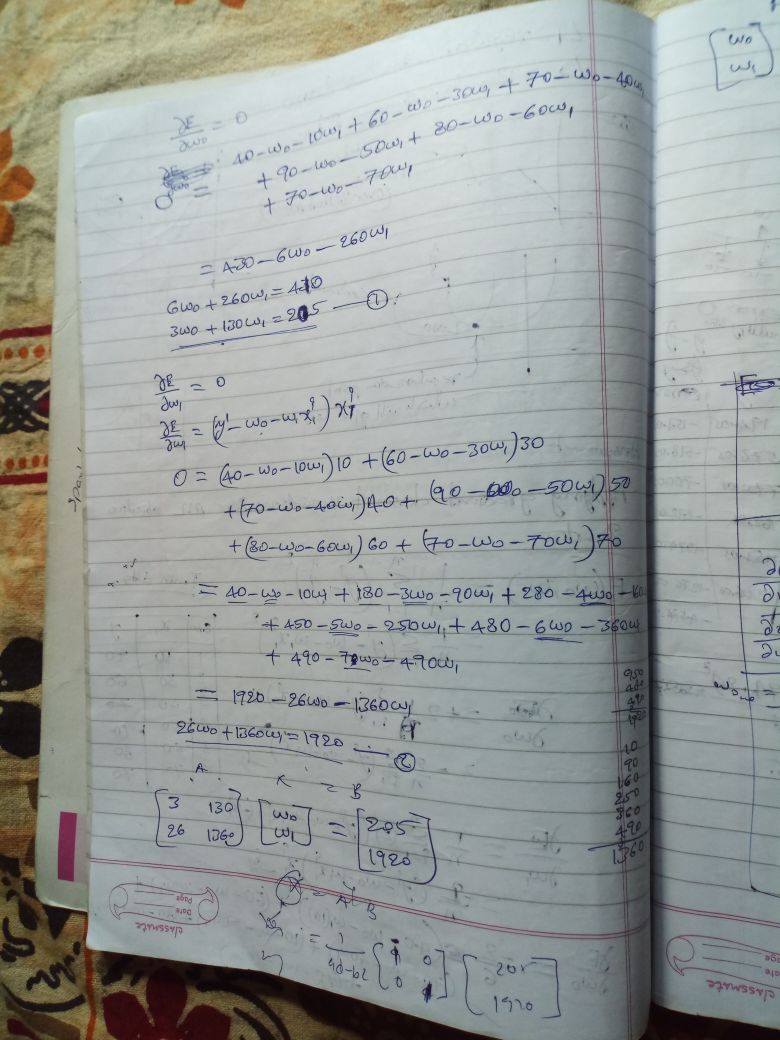 ∂E/∂w₀ = 0
0 = 40-w₀-10w₁ + 60-w₀-30w₁ + 70-w₀-40w₁
+ 90-w₀-50w₁ + 80-w₀-60w₁
+ 70-w₀-70w₁
= 430-6w₀-260w₁
6w₀+260w₁=410
3w₀+130w₁=205 —①
∂E/∂w₁ = 0
∂E/∂w₁ = (yⁱ-w₀-w₁x₁ⁱ) x₁ⁱ
0 = (40-w₀-10w₁)10 + (60-w₀-30w₁)30
+(70-w₀-40w₁)40 + (90-w₀-50w₁)50
+(80-w₀-60w₁)60 + (70-w₀-70w₁)70
= 40-w₀-10w₁ + 180-3w₀-90w₁ + 280-4w₀-160
+450-5w₀-250w₁ + 480-6w₀-360w₁
+ 490-7w₀-490w₁
= 1920-26w₀-1360w₁
26w₀+1360w₁=1920 —②
950
480
490
1920
10
90
160
250
360
490
1360
A X = B
[3 130] [w₀] = [205]
[26 1360] [w₁] [1920]
X = A⁻¹B
= 1
[205]
[1920]
classmate
Date
Page
[w₀]
[w₁]
classmate
Date
Page